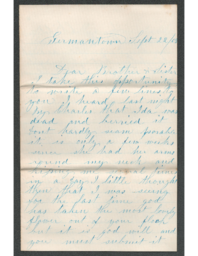 Germantown Sept 28
Dear Brother & Sister
I take this opportunity
to write a few lines to
you I heard last night
by Charles that Ida was
dead and buried it
but hardly seem possible
it is only a few weeks
since she had her arms
round my neck and
in a good little thought
then that I was seeing
for the last time god
has taken the most lovely
flower out of your
but it is god will and
you must submit it